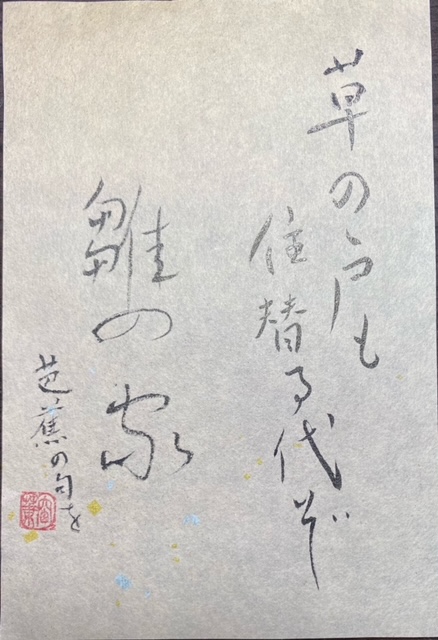 草の戸も
住替る代ぞ
雛の家
芭蕉の句を